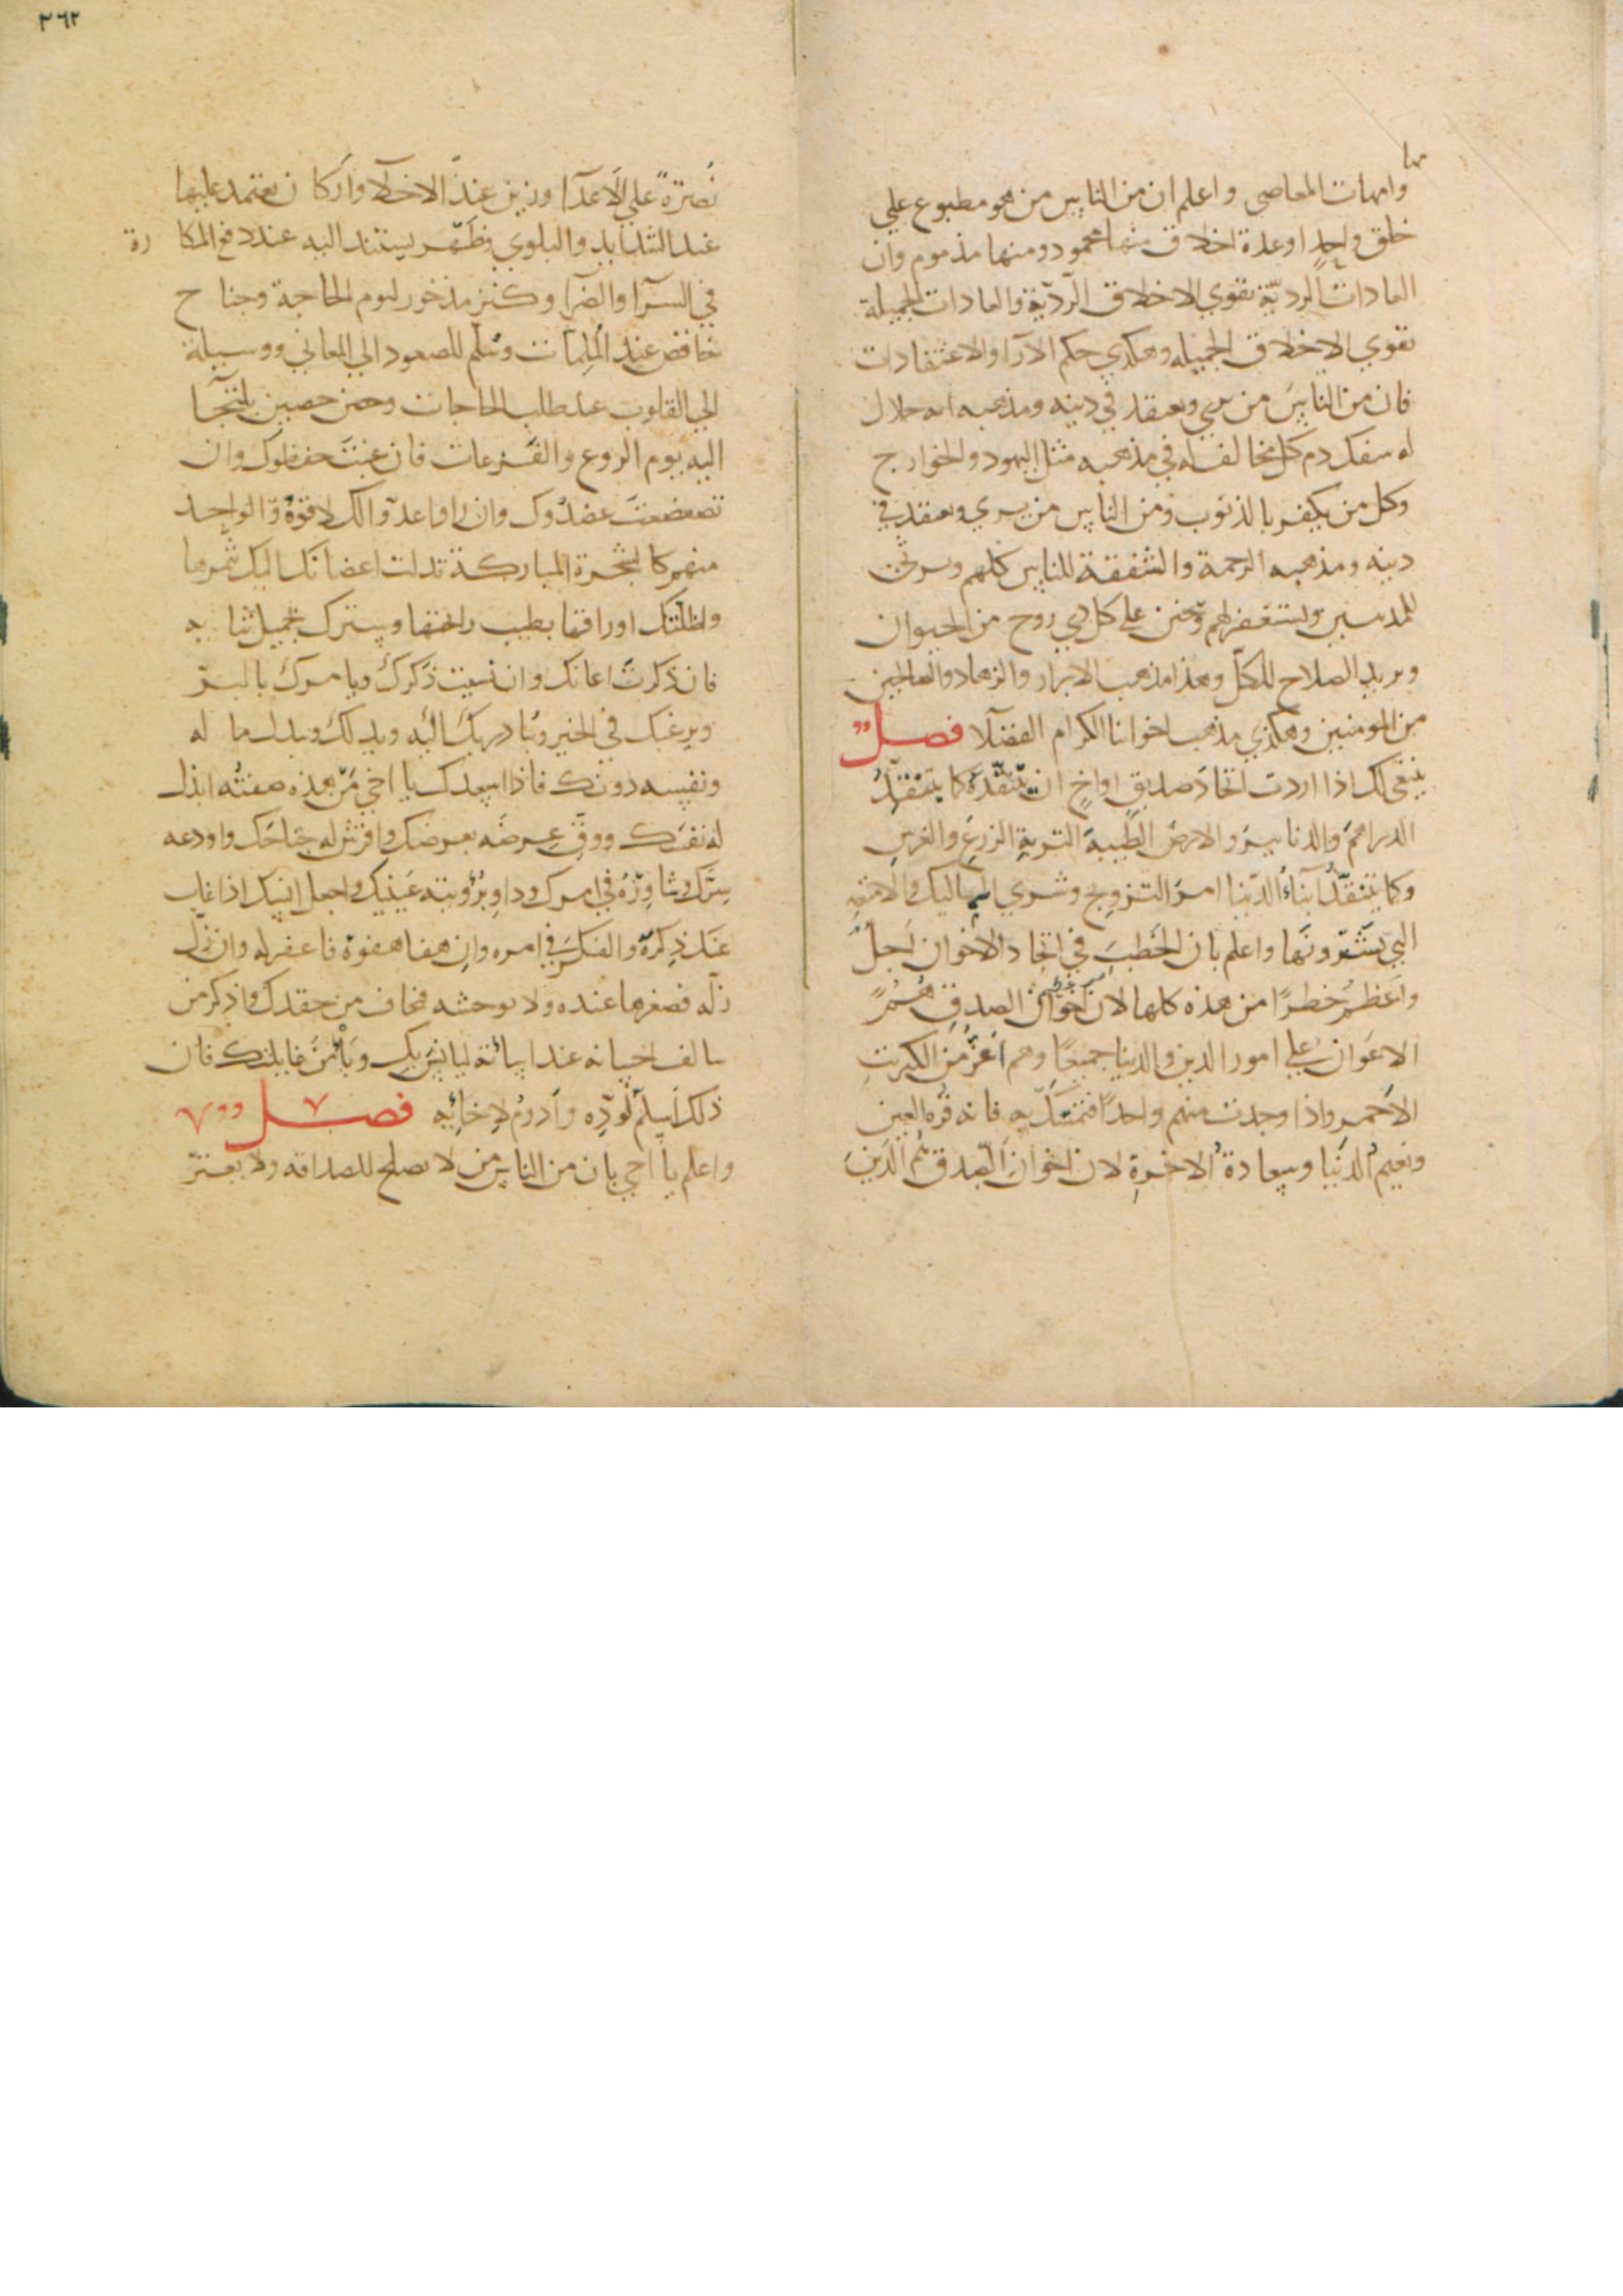 وامهات المعاصي واعلم ان من الناس من هو مطبوع علي
خلق واحد او عدة اخلاق منها محمود ومنها مذموم وان
العادات الرديّة تقوي الاخلاق الرديّة والعادات الجميلة
تقوي الاخلاق الجميله وهكذي حكم الآرا والاعتقادات
فان من الناس من يري ويعتقد في دينه ومذهبه انه حلال
له سفك دم كل مخالف له في مذهبه مثل اليهود والخوارج
وكل من يكفر بالذنوب ومن الناس من يري ويعتقد في
دينه ومذهبه الرحمة والشفقة للناس كلهم ويرثي
للمذنبين ويستغفر لهم ويحنن علي كل ذي روح من الحيوان
ويريد الصلاح للكل وهذا مذهب الابرار والزهاد والصالحين
من المومنين وهكذي مذهب اخواننا الكرام الفضلا فصل
ينبغي لك اذا اردت اتخاذ صديق او اخ ان تنتقده كما تنتقد
الدراهم والدنانير والارض الطيبة التربة الزرع والغرس
وكما ينتقد ابناء الدنيا امر التزويج وشري المماليك والامتعه
التي يشترونها واعلم بان الخطب في اتخاذ الاخوان اجل
واعظم خطرًا من هذه كلها لان اخوان الصدق هم
الاعوان علي امور الدين والدنيا جميعًا وهم اعز من الكبريت
الاحمر واذا وجدت منهم واحدًا فتمسّك به فانه قرة العين
ونعيم الدنيا وسعادة الاخرة لان اخوان الصدق هم الذين
٣٦٢
نصرة علي الاعدا وزين عند الاخلا واركان يعتمد عليها
عند الشدايد والبلوي وظهر يستند اليه عند دفع المكاره
في السرا والضرا وكنز مذخور ليوم الحاجة وجناح
خافض عند الملمات وسلم للصعود الي المعاني ووسيلة
الي القلوب عند طلب الحاجات وحصن حصين يلتجا
اليه يوم الروع والفزعات فان غبت حفظوك وان
تضعضعت عضدوك وان راوا عدوا لك لا قوة والواحد
منهم كالشجرة المباركة تدلت اغصانك اليك بثمرها
واظلتك اوراقها بطيب رايحتها ويسترك بجميل
فان ذكرت اعانك وان نسيت ذكرك ويامرك بالبر
ويرغبك في الخير ويبادر بك اليه ويدلك ويبذل ماله
ونفسه دونك فاذا اسعدك يا اخي من هذه صفته ابذل
له نفسك ووق عرضه بعرضك وافرش له جناحك واودعه
سرك وشاوره في امرك وداو برؤيته عينيك واجعل انسك اذا غاب
عنك ذكره والفكر في امره وان هفا هفوة فاغفر له وان زل
زلة فصغرها عنده ولا توحشه فيخاف من حقدك واذكر من
سالف احسانه عند اساته ليانس بك ويأمن غايلتك فان
ذلك اسلم لوده وادوم لاخائه فصل
واعلم يا اخي بان من الناس من لا يصلح للصداقه ولا يعتر